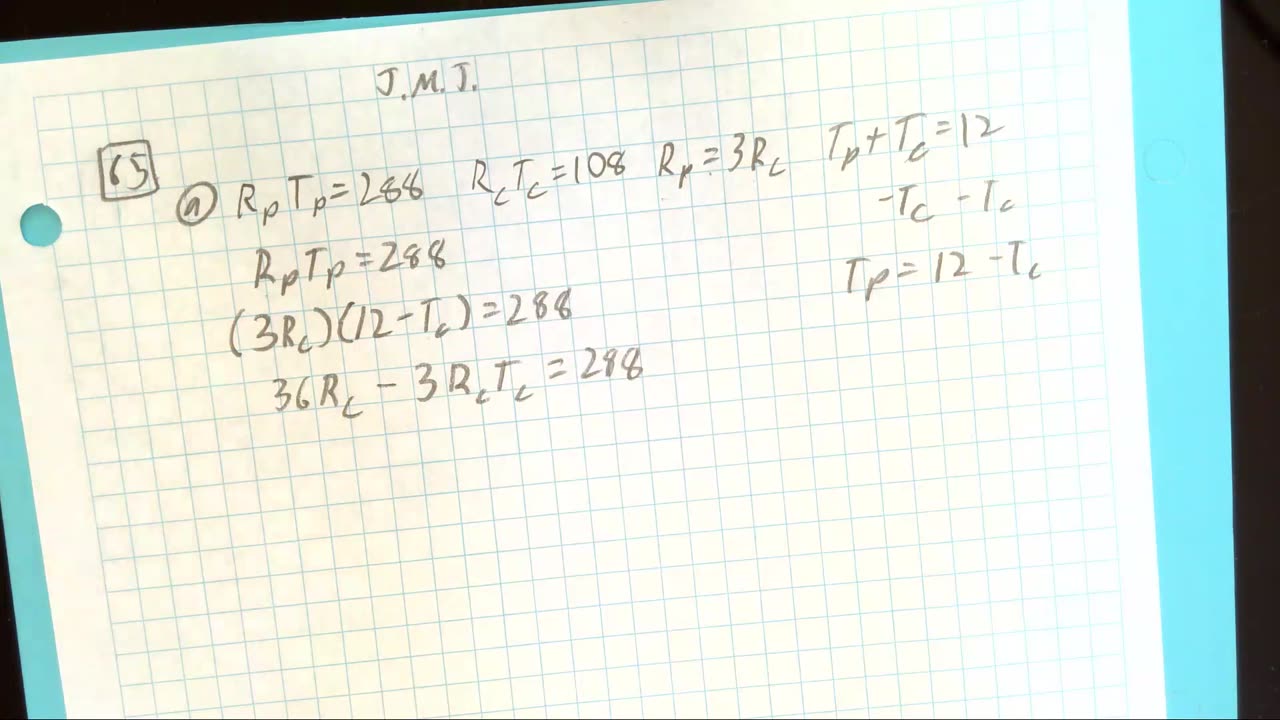 J.M.J.
65
(a) R_p T_p = 288 R_c T_c = 108 R_p = 3R_c T_p + T_c = 12
-T_c -T_c
R_p T_p = 288 T_p = 12 - T_c
(3R_c)(12 - T_c) = 288
36R_c - 3R_c T_c = 288